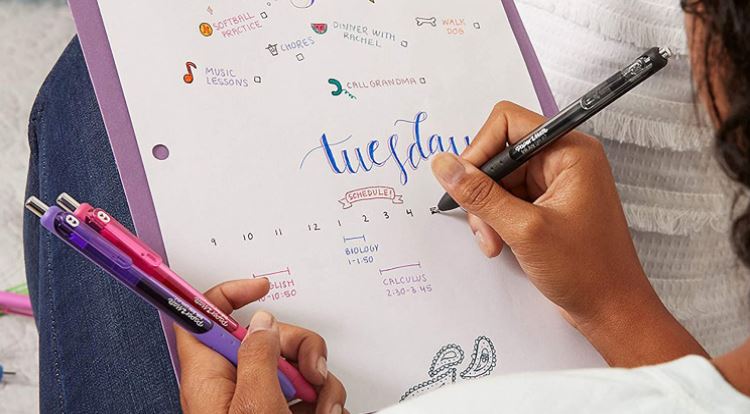 SOFTBALL
PRACTICE
DINNER WITH
RACHEL
WALK
DOG
CHORES
MUSIC
LESSONS
CALL GRANDMA
tuesday
SCHEDULE!
9 10 11 12 1 2 3 4
BIOLOGY
1-1:50
CALCULUS
2:30-3:45
10:50
Paper Mate
Paper Mate
Paper Mate